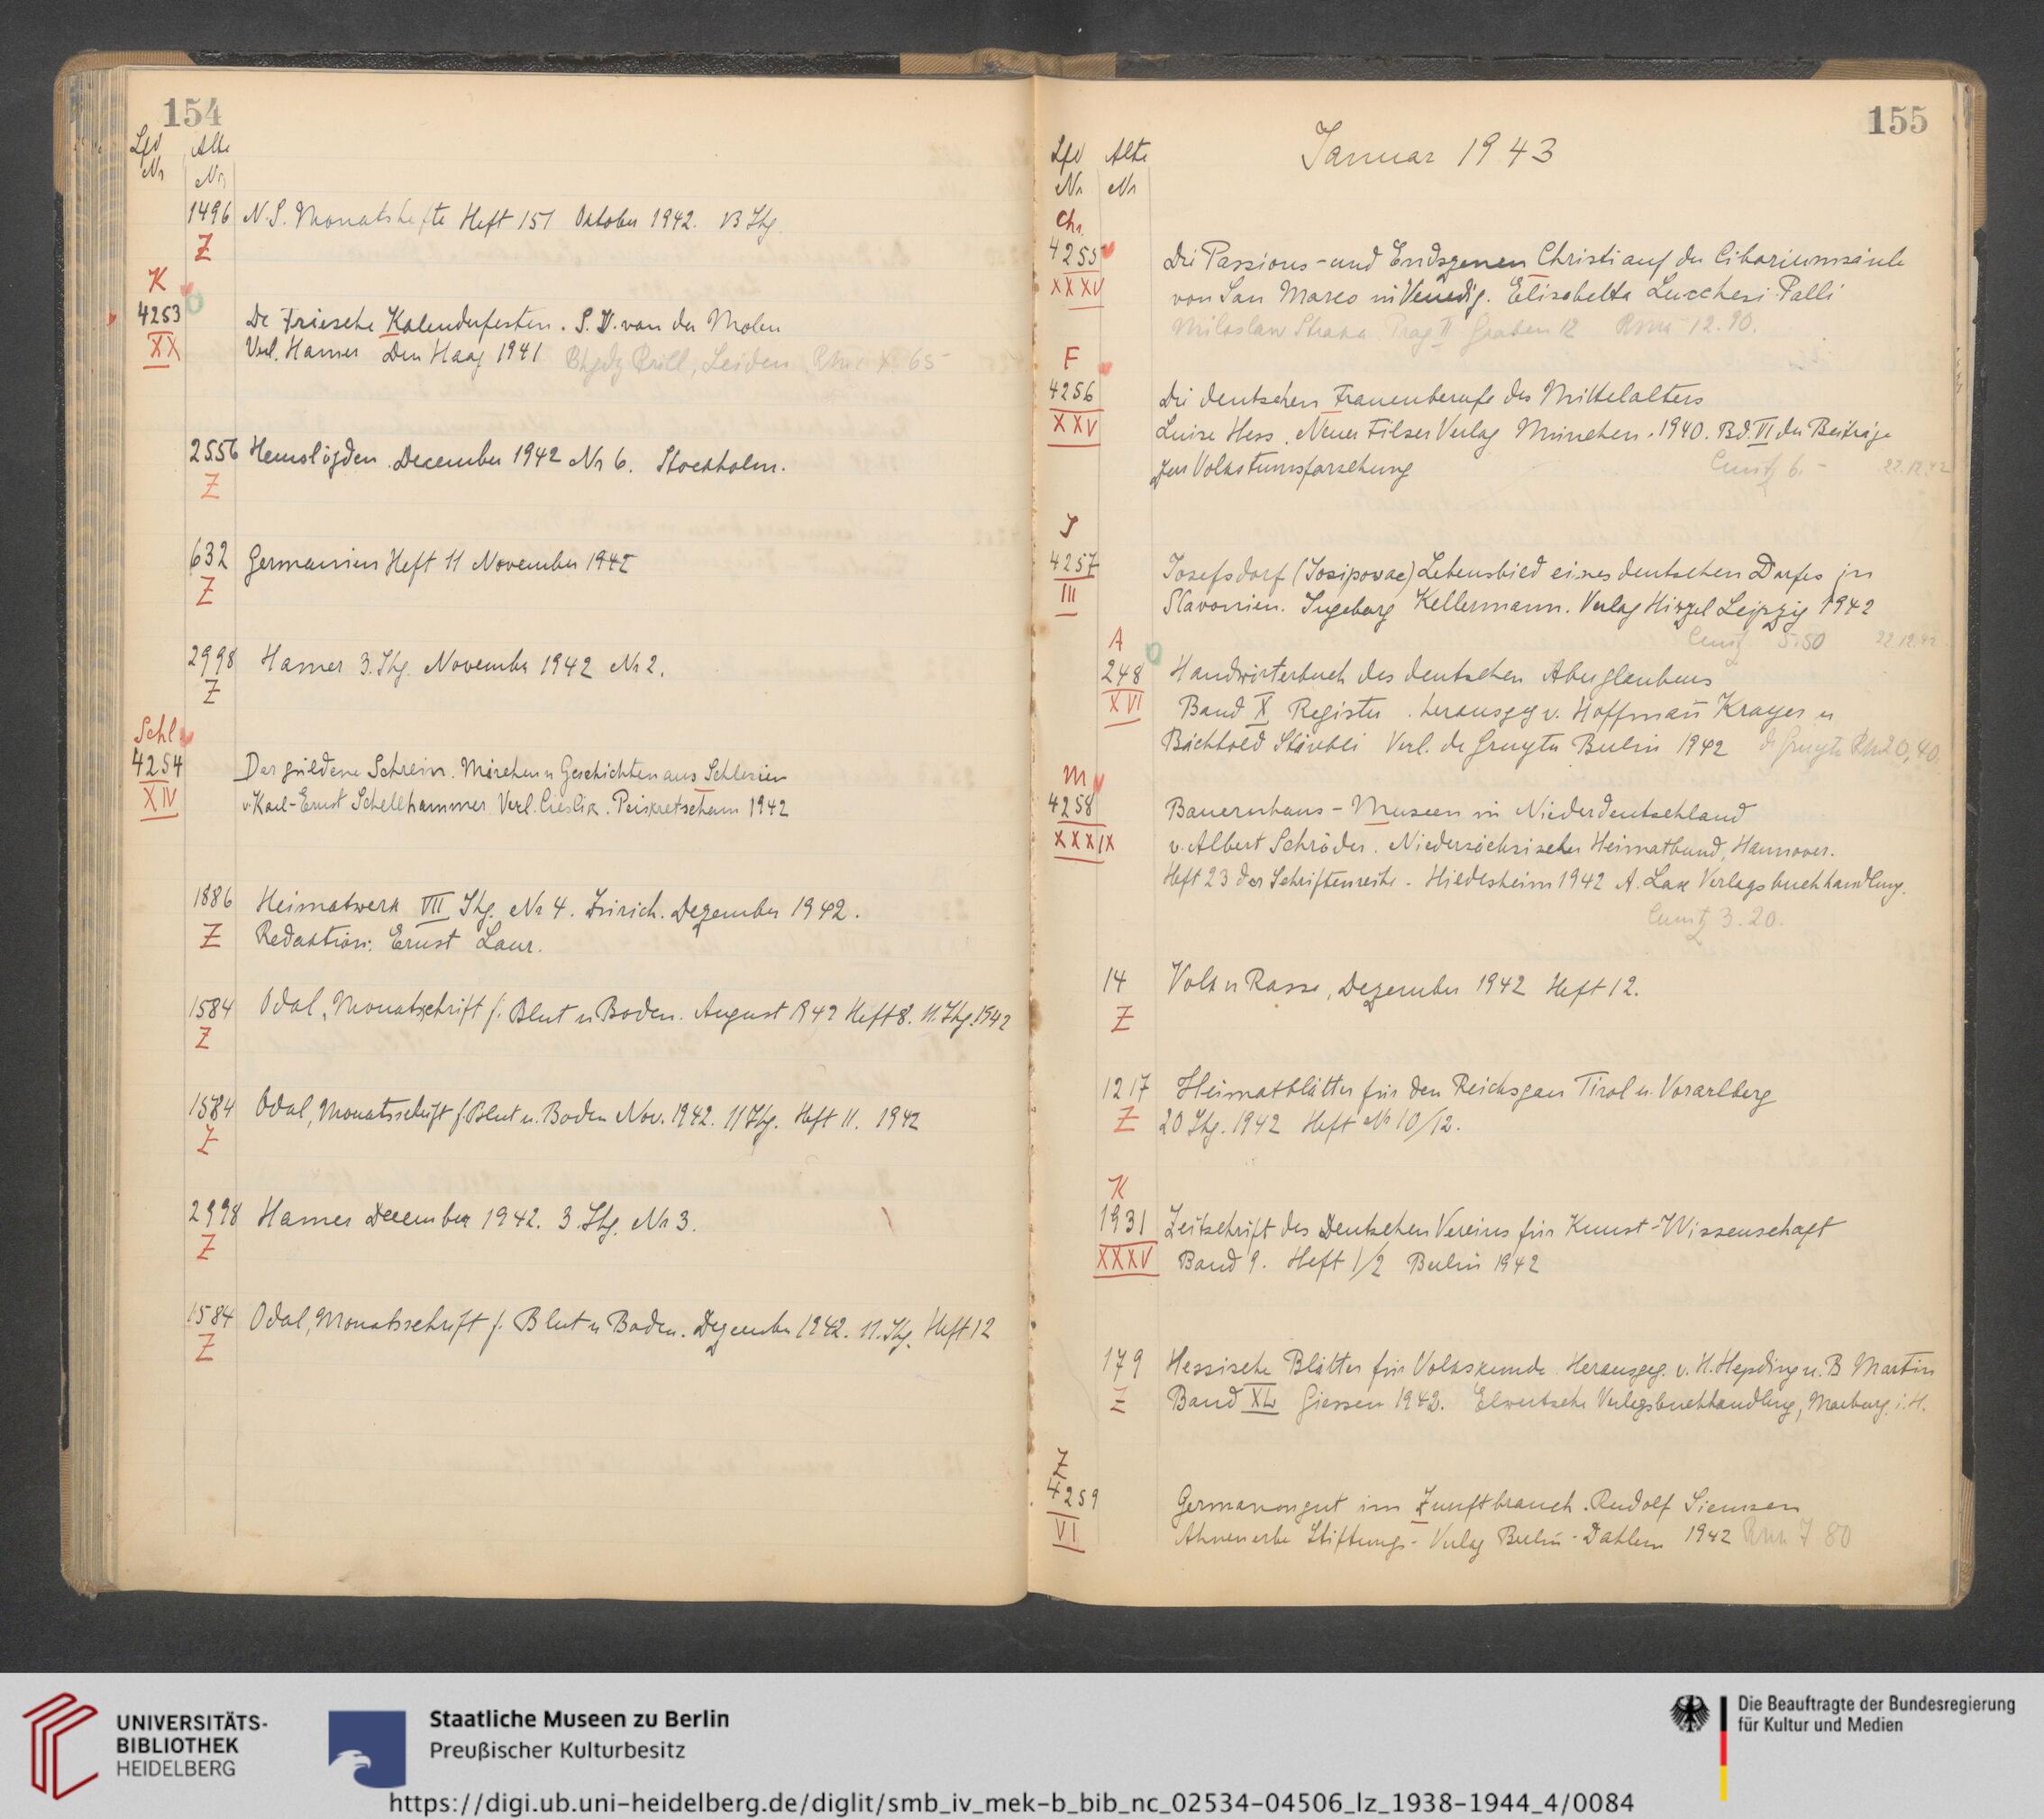 154
Lfd Alte
Nr Nr
1496 N.S. Monatshefte Heft 151 Oktober 1942. 13 Jhg.
Z
K
4253 De Friesche Kalenderfesten. S. J. van der Molen
XX Verl. Hamer Den Haag 1941 Bhgdg Brill, Leiden
2556 Hemslöjden. December 1942 Nr 6. Stockholm.
Z
632 Germanien Heft 11 November 1942
Z
2998 Hamer 3. Jhg. November 1942 Nr 2.
Z
Schl
4254 Der güldene Schrein. Märchen u Geschichten aus Schlesien
XIV v. Karl-Ernst Schellhammer Verl. Cieslik. Peiskretscham 1942
1886 Heimatwerk VII Jhg. Nr 4. Zürich. Dezember 1942.
Z Redaktion: Ernst Laur.
1584 Odal, Monatschrift f. Blut u Boden. August 1942 Heft 8. 11. Jhg. 1942
Z
1584 Odal, Monatsschrift f. Blut u. Boden Nov. 1942. 11 Jhg. Heft 11. 1942
Z
2998 Hamer December 1942. 3. Jhg. Nr 3.
Z
1584 Odal, Monatsschrift f. Blut u Boden. Dezember 1942. 11. Jhg. Heft 12
Z
155
Januar 1943
Lfd Alte
Nr Nr
Chr.
4255 Die Passions- und Endszenen Christi auf der Ciboriumsäule
XXXV von San Marco in Venedig. Elisabetta Lucchesi Palli
Miloslaw Straka Prag II Graben 12 Rm 12.90.
F
4256 Die deutschen Frauenberufe des Mittelalters
XXV Luise Hess. Neuer Filser Verlag München. 1940. Bd. VI der Beiträge
zur Volkstumsforschung 6.- 22.12.42
J
4257 Josefsdorf (Josipovac) Lebensbild eines deutschen Dorfes in
III Slavonien. Ingeborg Kellermann. Verlag Hirzel Leipzig 1942
5.50 22.12.42
A
248 Handwörterbuch des deutschen Aberglaubens
XVI Band X Register. herausgeg v. Hoffmann Krayer u
Bächtold Stäubli Verl. de Gruyter Berlin 1942 de Gruyter Rm 20,40.
M
4258 Bauernhaus-Museen in Niederdeutschland
XXXIX v. Albert Schröder. Niedersächsischer Heimatbund, Hannover.
Heft 23 der Schriftenreihe. Hildesheim 1942 A. Lax Verlagsbuchhandlung.
3.20.
14 Volk u Rasse, Dezember 1942 Heft 12.
Z
1217 Heimatblätter für den Reichsgau Tirol u. Vorarlberg
Z 20 Jhg. 1942 Heft Nr 10/12.
K
1931 Zeitschrift des Deutschen Vereins für Kunst-Wissenschaft
XXXV Band 9. Heft 1/2 Berlin 1942
179 Hessische Blätter für Volkskunde Herausgeg. v. H. Hepding u. B Martin
Z Band XL Giessen 1942. Elwertsche Verlagsbuchhandlung, Marburg i. H.
Z
4259 Germanengut im Zunftbrauch. Rudolf Siemsen
VI Ahnenerbe Stiftungs-Verlag Berlin-Dahlem 1942 Rm 7 80
UNIVERSITÄTS-
BIBLIOTHEK
HEIDELBERG
Staatliche Museen zu Berlin
Preußischer Kulturbesitz
Die Beauftragte der Bundesregierung
für Kultur und Medien
https://digi.ub.uni-heidelberg.de/diglit/smb_iv_mek-b_bib_nc_02534-04506_lz_1938-1944_4/0084